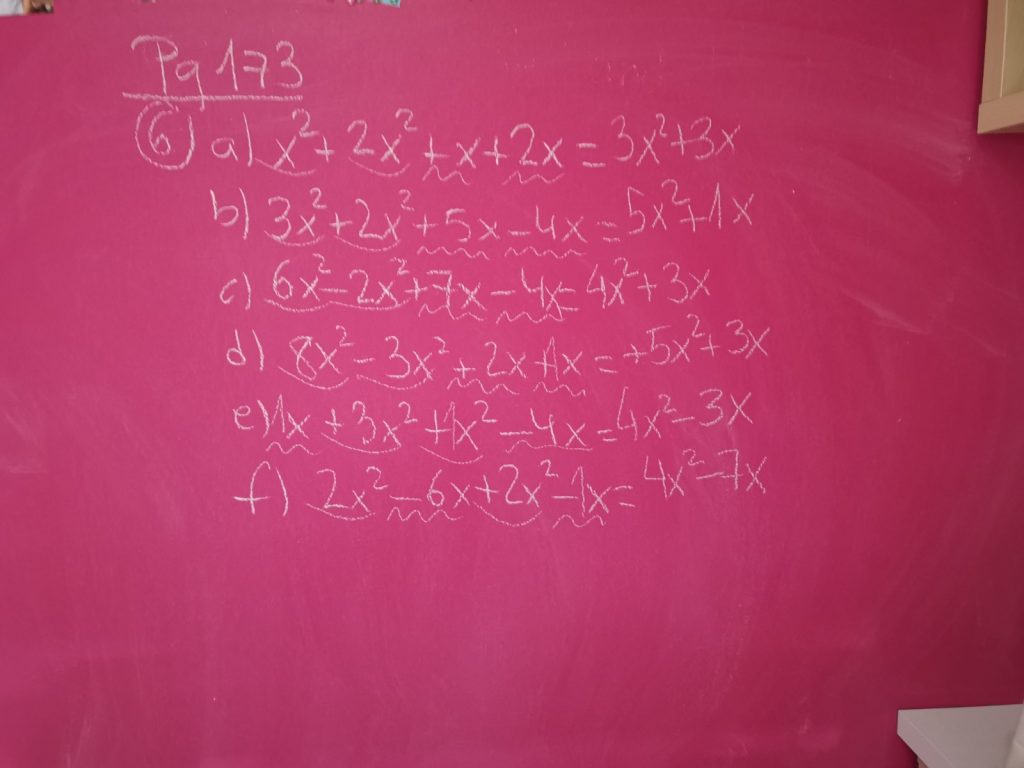 Pg 173
6) a) x²+2x²+x+2x=3x²+3x
b) 3x²+2x²+5x-4x=5x²+1x
c) 6x²-2x²+7x-4x=4x²+3x
d) 8x²-3x²+2x+1x=+5x²+3x
e) 1x+3x²+1x²-4x=4x²-3x
f) 2x²-6x+2x²-1x=4x²-7x